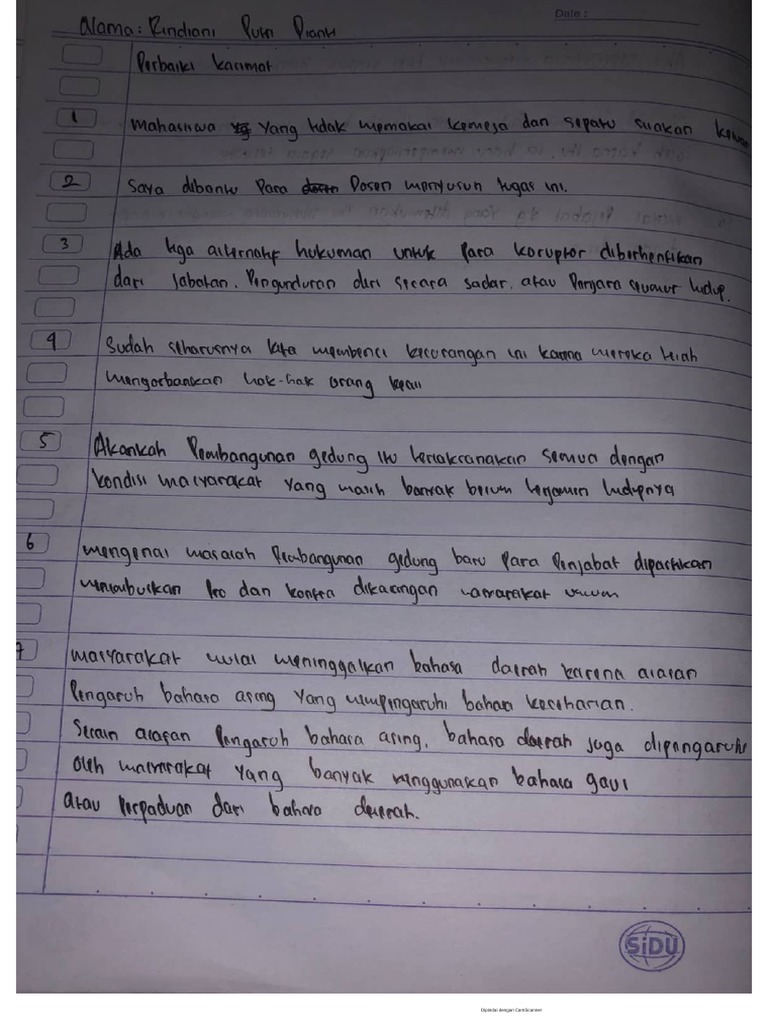 Date :
Nama: Rindiani Putri Dianti
Perbaiki kalimat
1 Mahasiswa yang tidak memakai kemeja dan sepatu silakan
2 Saya dibantu para Dosen menyusun tugas ini.
3 Ada tiga alternatif hukuman untuk para koruptor diberhentikan
dari jabatan. Pengunduran diri secara sadar. atau Penjara seumur hidup.
4 Sudah seharusnya kita membenci kecurangan ini karna mereka telah
mengorbankan hak-hak orang kecil
5 Akankah Pembangunan gedung itu terlaksanakan semua dengan
kondisi masyarakat yang masih banyak belum terjamin hidupnya
6 mengenai masalah Pembangunan gedung baru para Penjabat dipastikan
menimbulkan Pro dan kontra dikalangan masyarakat umum
7 masyarakat mulai meninggalkan bahasa daerah karena alasan
Pengaruh bahasa asing yang mempengaruhi bahasa keseharian.
Selain alasan Pengaruh bahasa asing, bahasa daerah juga dipengaruhi
oleh masyarakat yang banyak menggunakan bahasa gaul
atau Perpaduan dari bahasa daerah.
SiDU
Dipindai dengan CamScanner